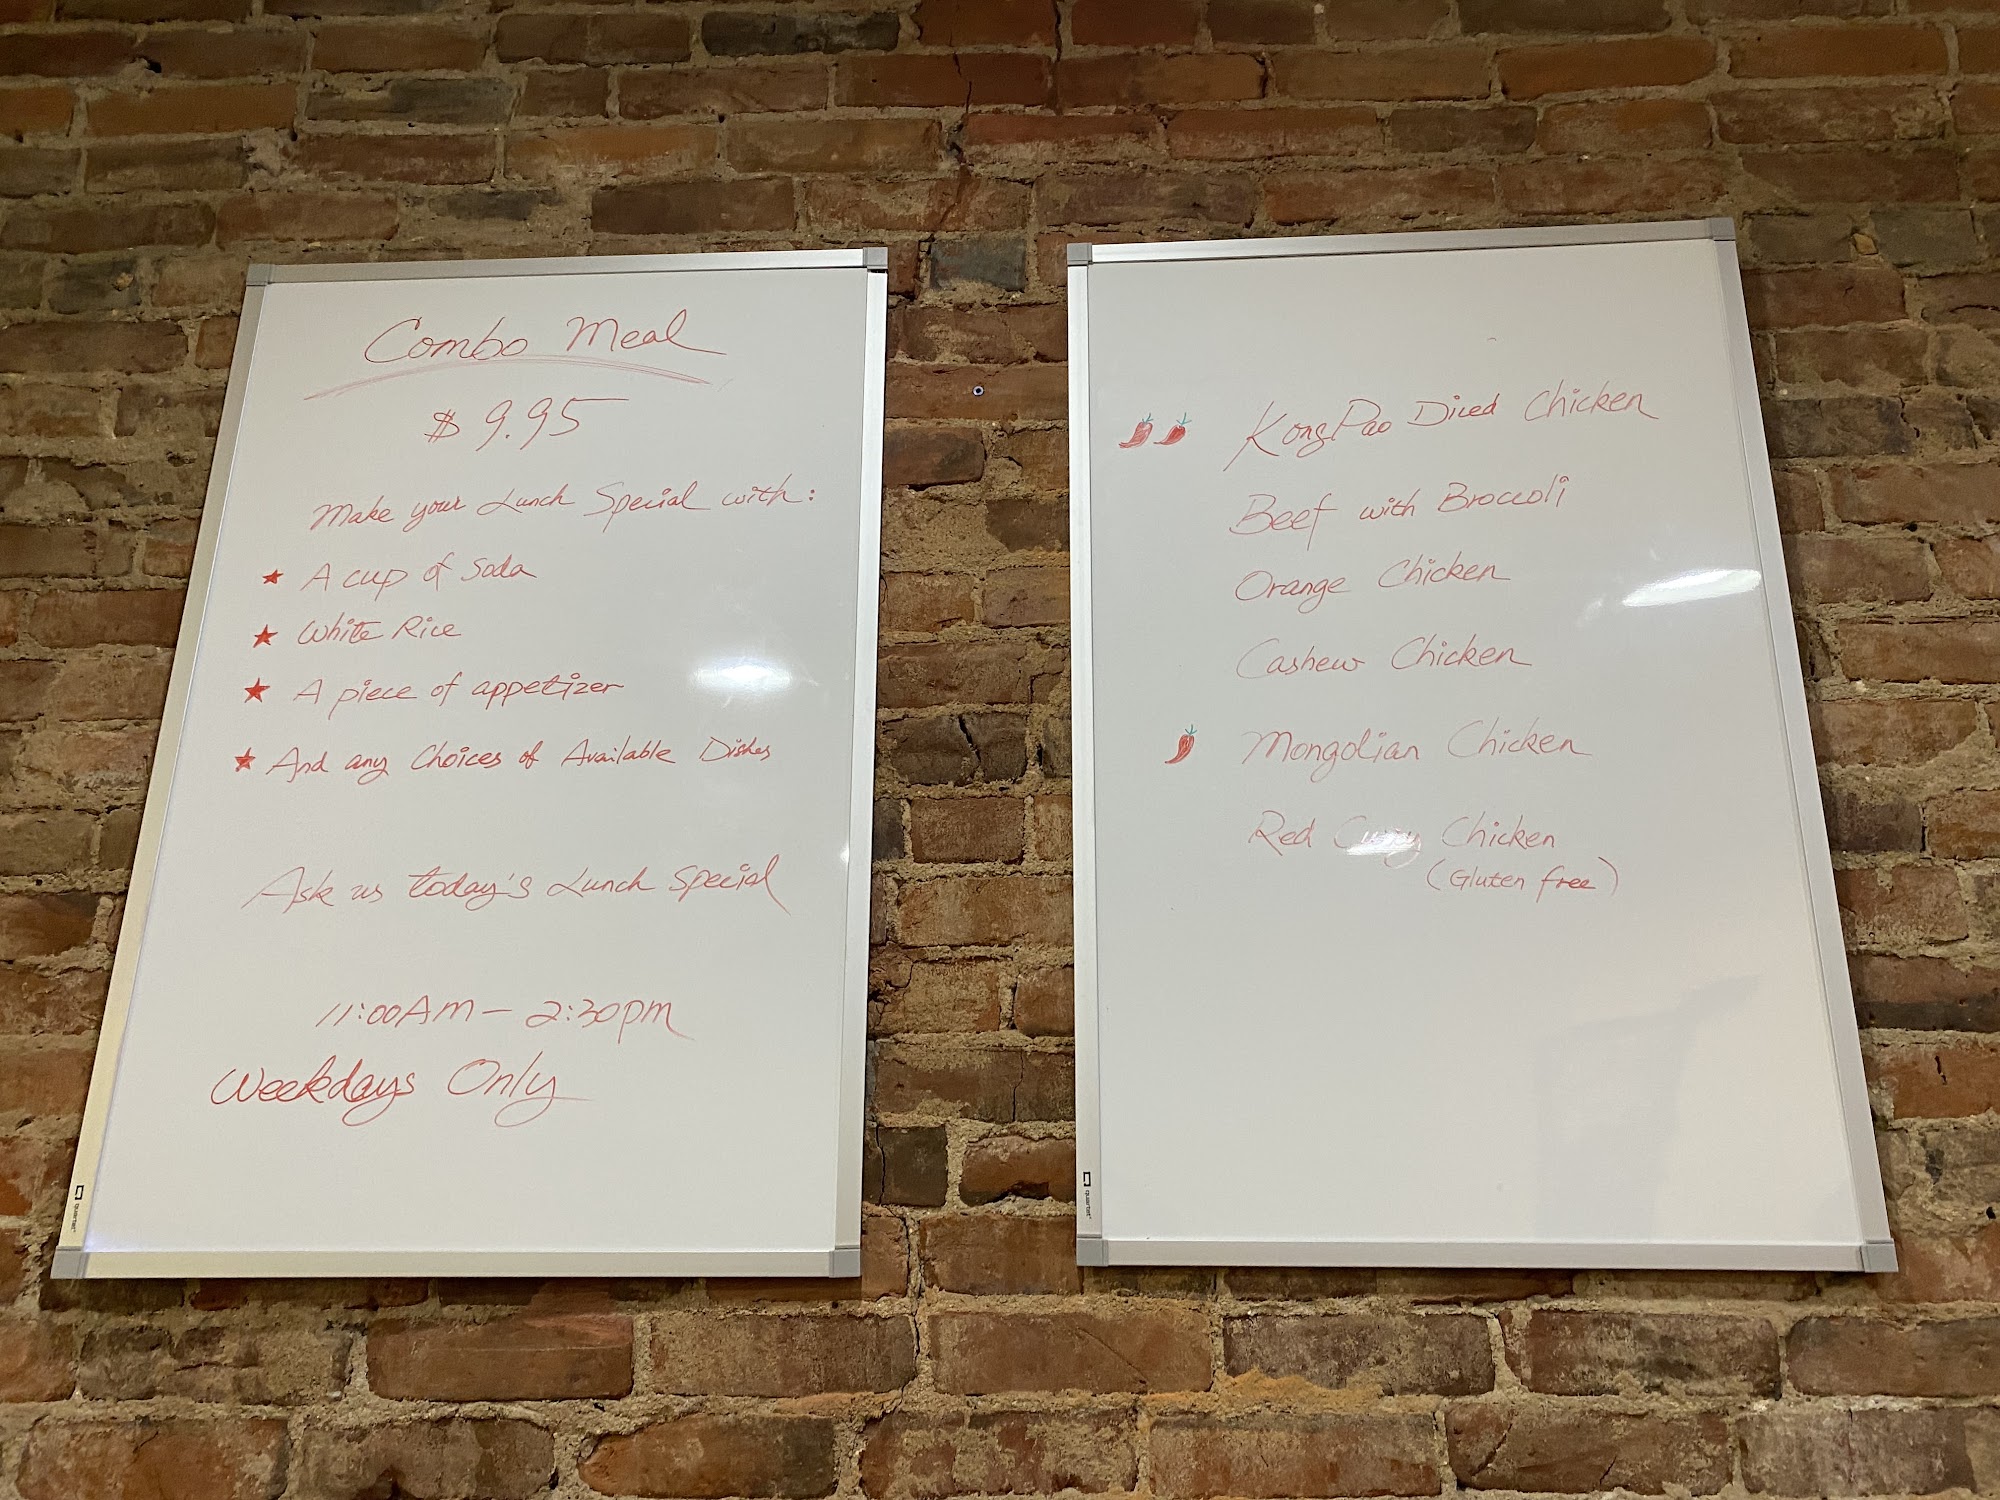 Combo Meal
$9.95
Make your Lunch Special with:
★ A cup of Soda
★ White Rice
★ A piece of appetizer
★ And any Choices of Available Dishes
Ask us today's Lunch Special
11:00AM — 2:30pm
Weekdays Only
QUARTET
KongPao Diced Chicken
Beef with Broccoli
Orange Chicken
Cashew Chicken
Mongolian Chicken
Red Curry Chicken
(Gluten free)
QUARTET